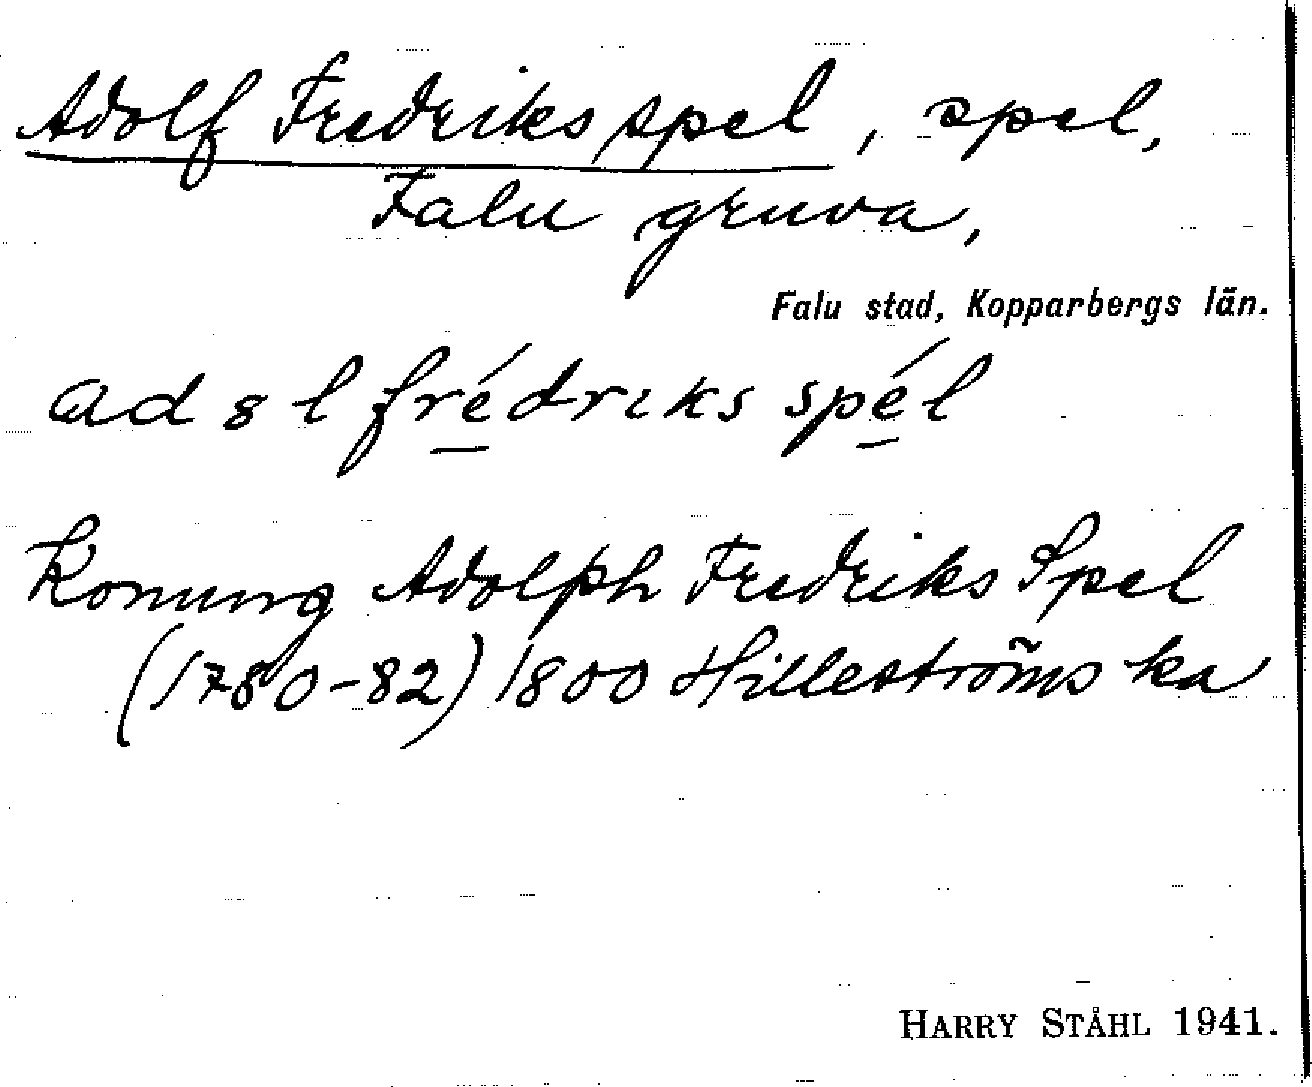 Adolf Fredriks spel, spel,
Falu gruva,
Falu stad, Kopparbergs län.
ad8lfré̲driks spé̲l
Konung Adolph Fredriks Spel
(1780-82) 1800 Hilleströms ka
HARRY STÅHL 1941.